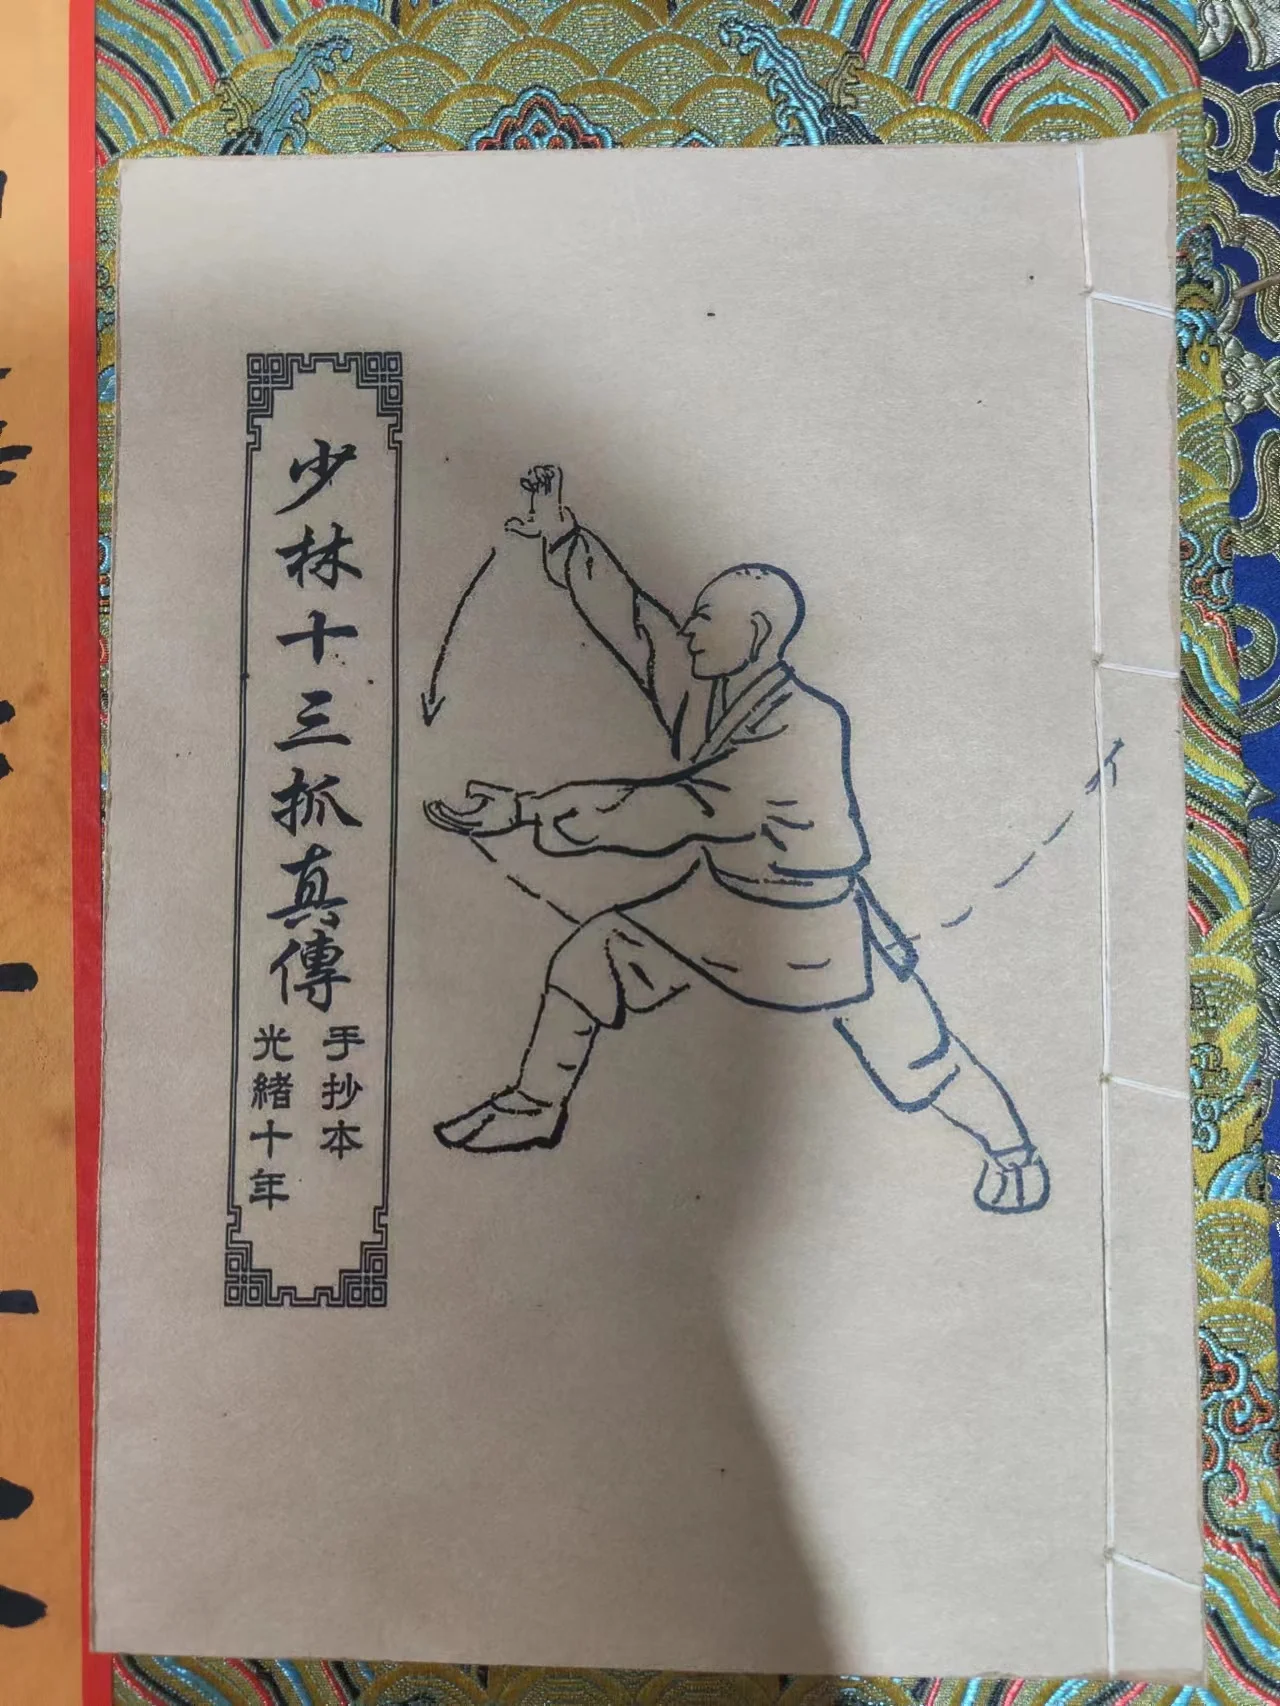 少林十三抓真傳
手抄本
光緒十年